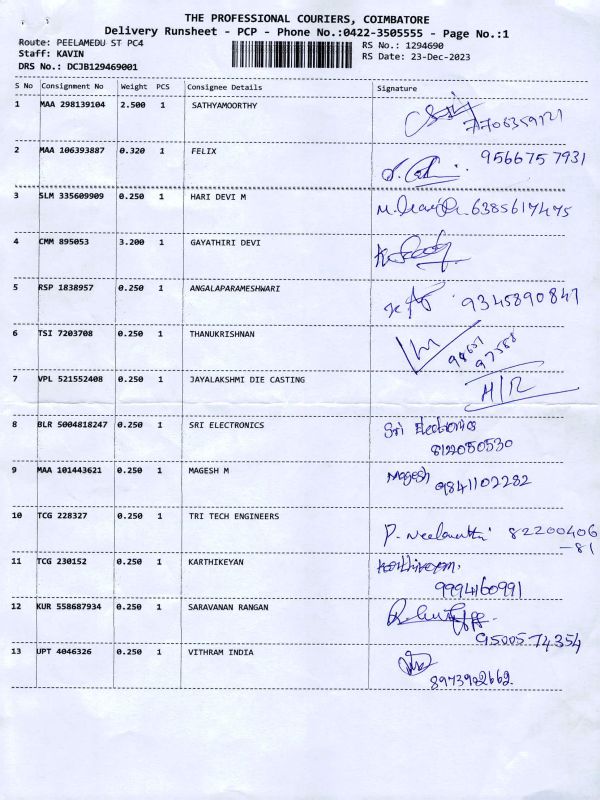 THE PROFESSIONAL COURIERS, COIMBATORE
Delivery Runsheet - PCP - Phone No.:0422-3505555 - Page No.:1
Route: PEELAMEDU ST PC4 RS No.: 1294690
Staff: KAVIN RS Date: 23-Dec-2023
DRS No.: DCJB129469001
S No Consignment No Weight PCS Consignee Details Signature
1 MAA 298139104 2.500 1 SATHYAMOORTHY
2 MAA 106393887 0.320 1 FELIX 9566757931
3 SLM 335609909 0.250 1 HARI DEVI M 6385617475
4 CMM 895053 3.200 1 GAYATHIRI DEVI
5 RSP 1838957 0.250 1 ANGALAPARAMESHWARI 9345890847
6 TSI 7203708 0.250 1 THANUKRISHNAN
7 VPL 521552408 0.250 1 JAYALAKSHMI DIE CASTING
8 BLR 5004818247 0.250 1 SRI ELECTRONICS Sri Electronics
8122050530
9 MAA 101443621 0.250 1 MAGESH M Magesh 9841102282
10 TCG 228327 0.250 1 TRI TECH ENGINEERS 82200406
-81
11 TCG 230152 0.250 1 KARTHIKEYAN
9994160991
12 KUR 558687934 0.250 1 SARAVANAN RANGAN
9500574354
13 UPT 4046326 0.250 1 VITHRAM INDIA
8973922662